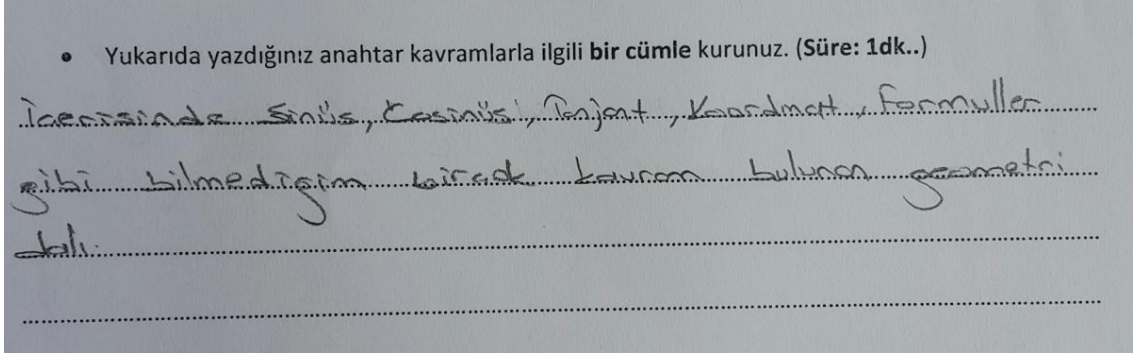 • Yukarıda yazdığınız anahtar kavramlarla ilgili bir cümle kurunuz. (Süre: 1dk..)
İçerisinde Sinüs, Cosinüs, Tanjant, Koordinat, Formüller
gibi bilmediğim birçok kavram bulunan geometri
dalı.